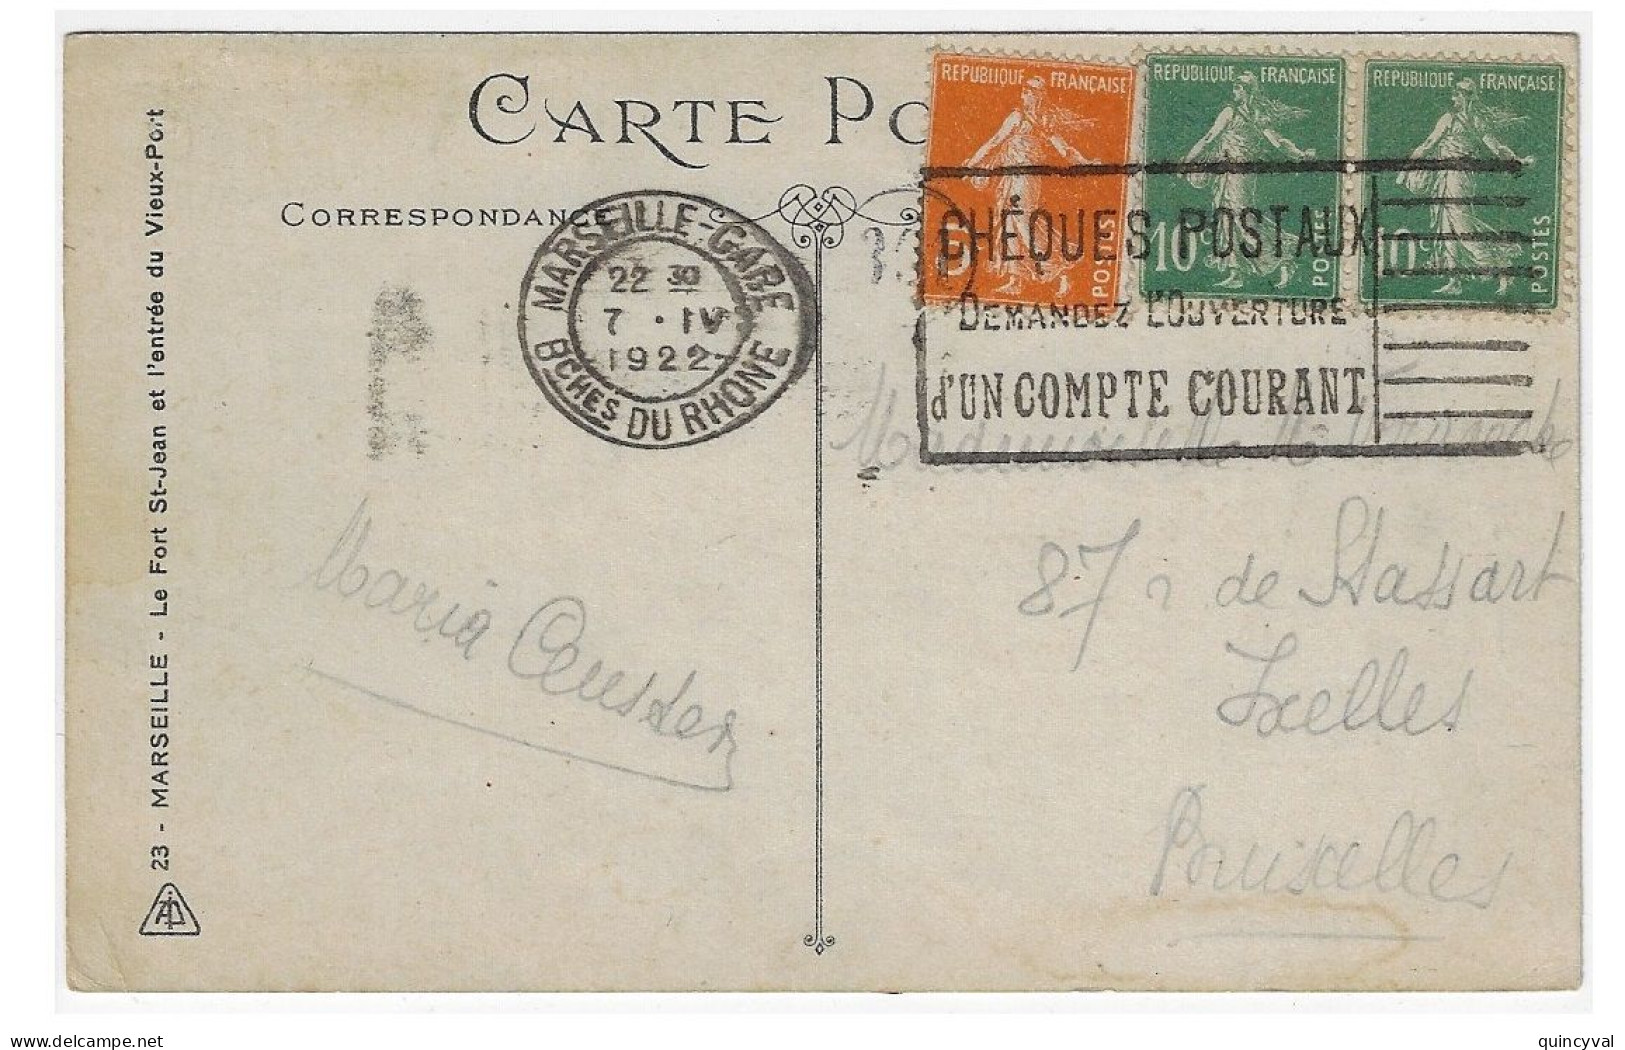 CARTE PO
CORRESPONDANCE
REPUBLIQUE FRANÇAISE
5
POSTES
REPUBLIQUE FRANÇAISE
10c
POSTES
REPUBLIQUE FRANÇAISE
10c
POSTES
MARSEILLE-GARE
22 30
7 · IV
1922
BCHES DU RHONE
CHÈQUES POSTAUX
DEMANDEZ L'OUVERTURE
d'UN COMPTE COURANT
Mademoiselle M.
87 r de Stassart
Ixelles
Bruxelles
Maria
23 - MARSEILLE - Le Fort St-Jean et l'entrée du Vieux-Port
delcampe.net
quincyval